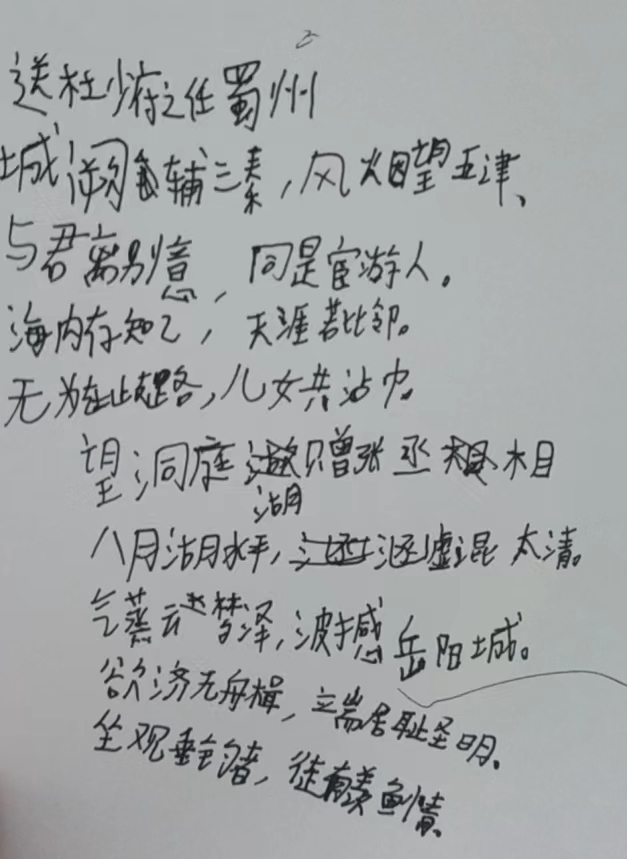 送杜少府之任蜀州
城阙辅三秦，风烟望五津、
与君离别意，同是宦游人。
海内存知己，天涯若比邻。
无为在歧路，儿女共沾巾。
望洞庭湖赠张丞相
八月湖水平，涵虚混太清。
气蒸云梦泽，波撼岳阳城。
欲济无舟楫，端居耻圣明、
坐观垂钓者，徒有羡鱼情、